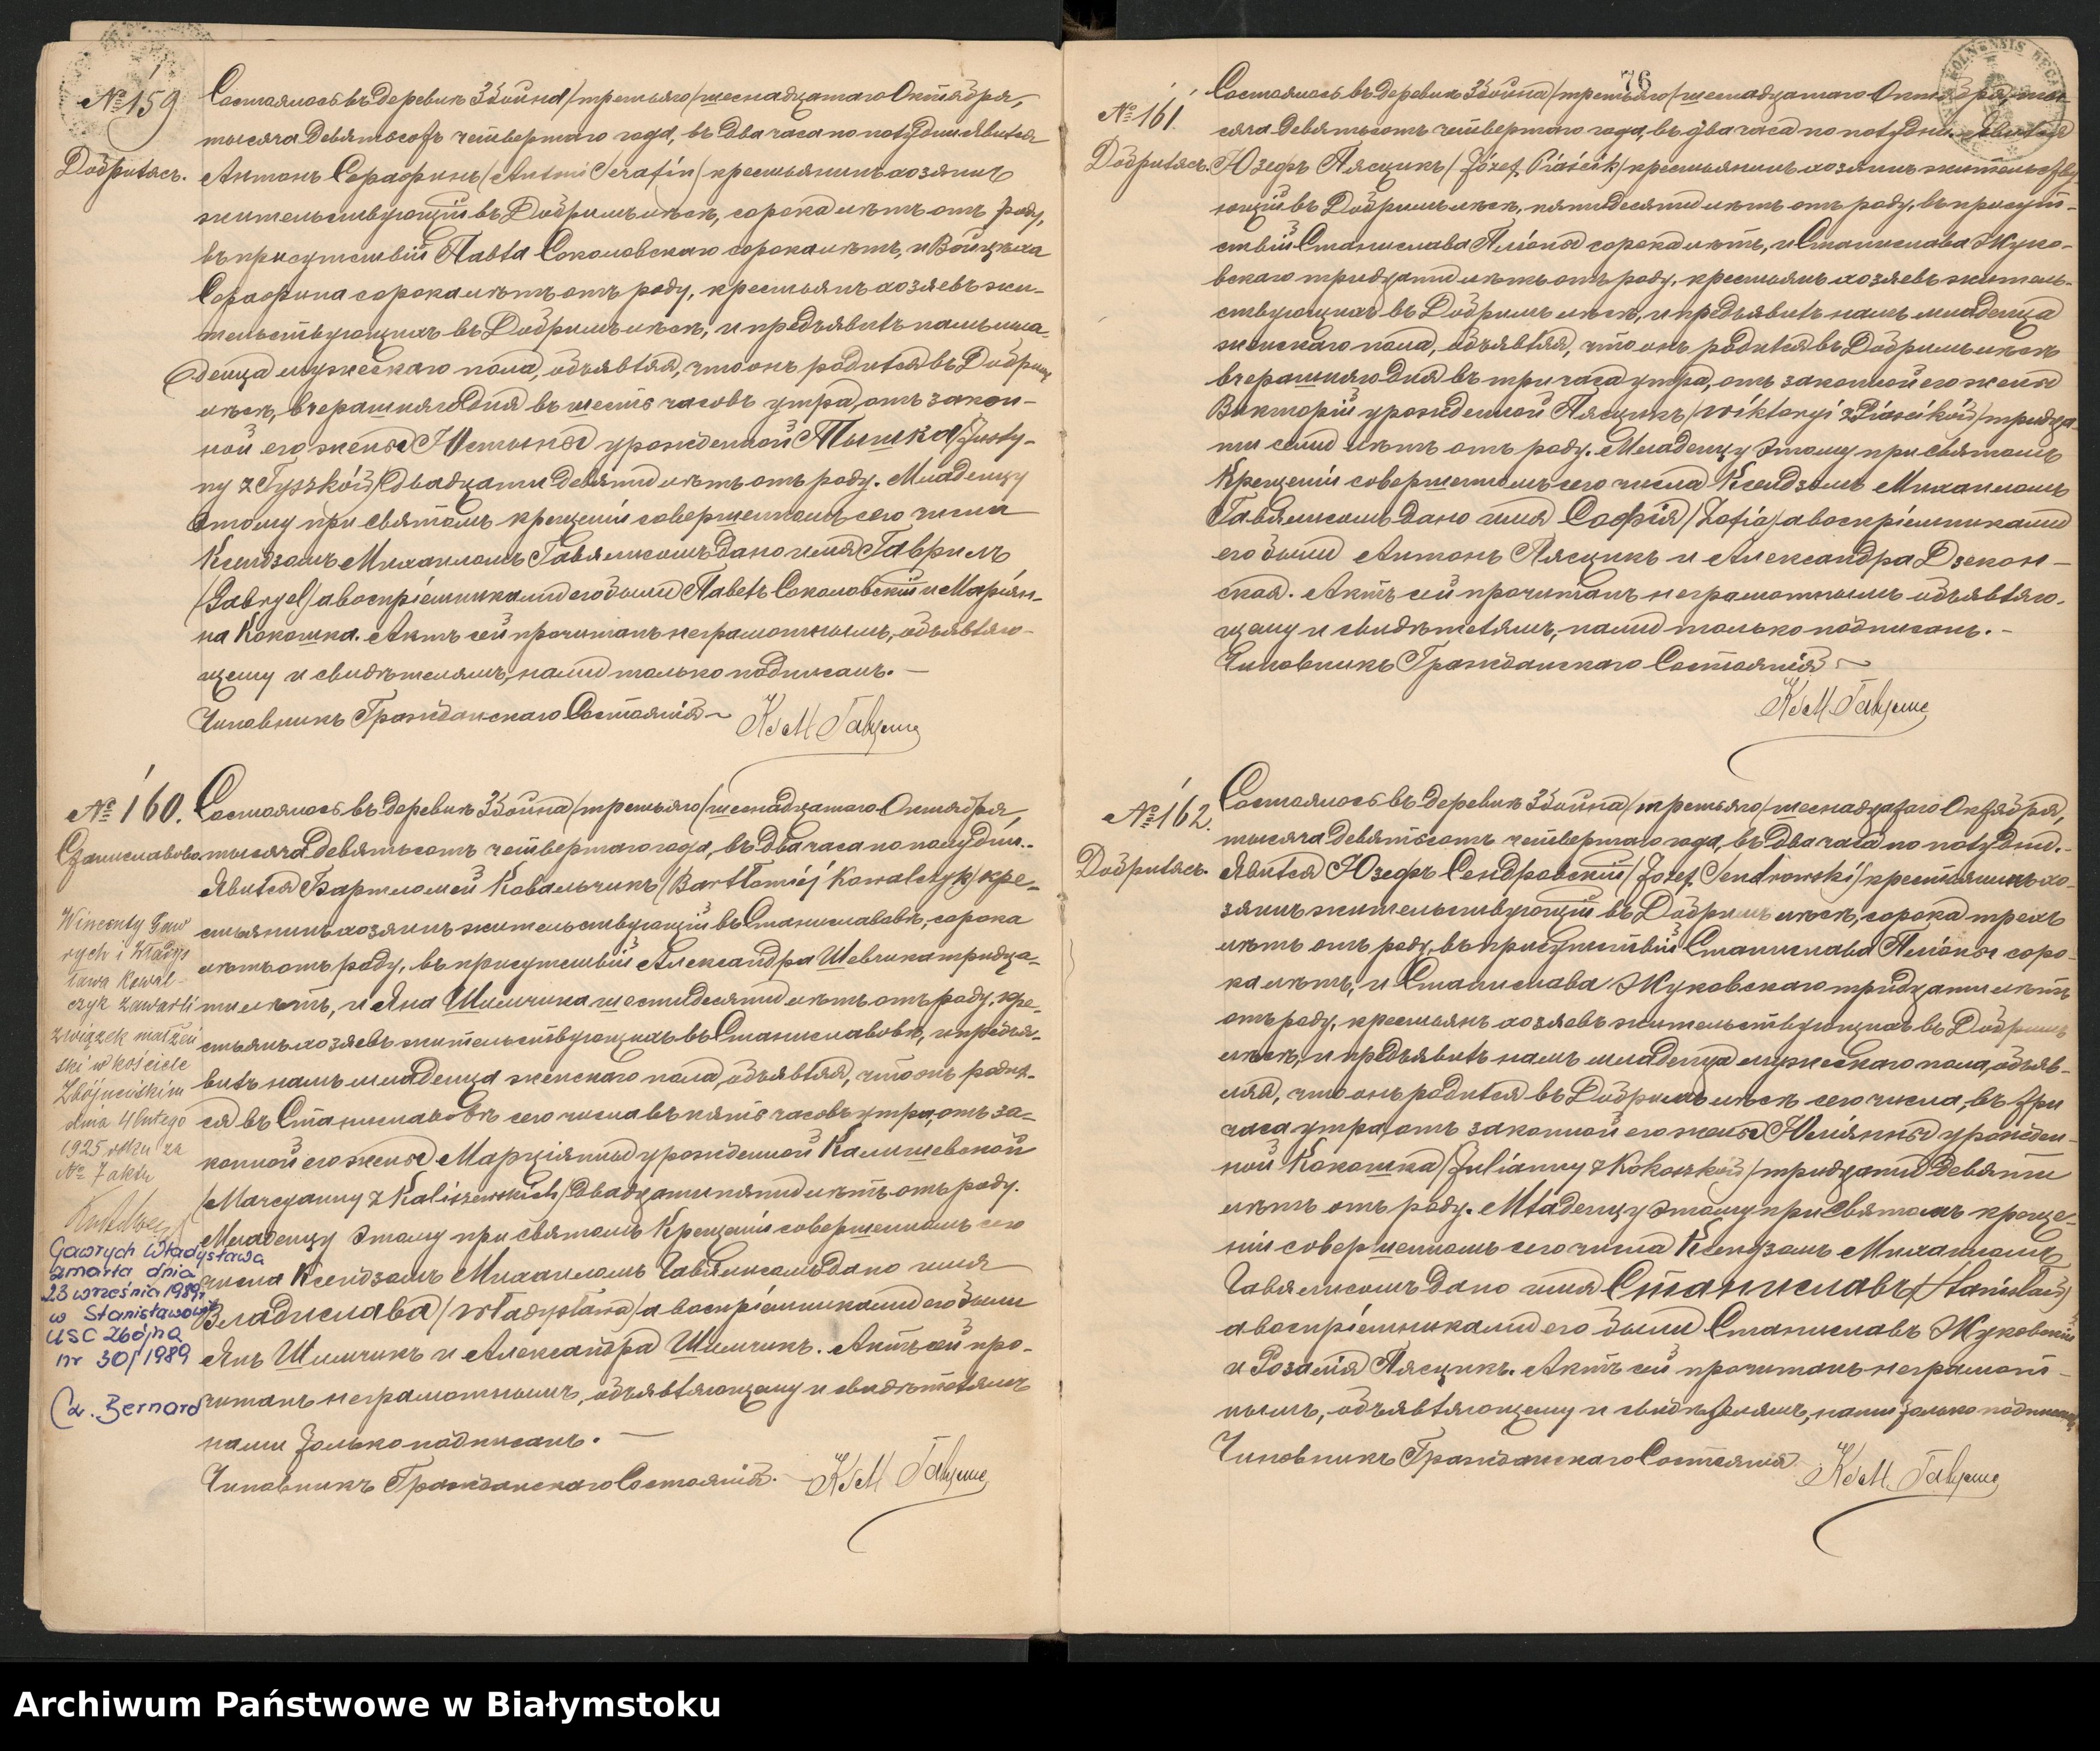 № 159
Добрылясъ.
Состоялось въ деревнѣ Збойна /третьяго/ шестнадцатаго Октября,
тысяча девятьсотъ четвертаго года, въ два часа по полудни. Явился
Антонъ Серафинъ /Antoni Serafin/ крестьянинъ хозяинъ
жительствующій въ Добрымъ лѣсѣ, сорока лѣтъ отъ роду,
въ присутствіи Павла Соколовскаго сорока лѣтъ, и Войцѣха
Серафина сорока лѣтъ отъ роду, крестьянъ хозяевъ жи-
тельствующихъ въ Добрымъ лѣсѣ, и предъявилъ намъ мла-
денца мужескаго пола, объявляя, что онъ родился въ Добрымъ
лѣсѣ, вчерашняго дня въ шесть часовъ утра, отъ закон-
ной его жены Юстины урожденной Тышка /Justy-
ny z Tyszków/ двадцати девяти лѣтъ отъ роду. Младенцу
этому при святомъ крещеніи совершенномъ сего числа
Ксендзомъ Михаиломъ Гавялисомъ дано имя Гавріилъ
/Gabryel/ а воспріемниками его были Павелъ Соколовскій и Маріян-
на Кокошка. Актъ сей прочитанъ неграмотнымъ, объявляю-
щему и свидѣтелямъ, нами только подписанъ. —
Чиновникъ Гражданскаго Состоянія
№ 160.
Станиславово
Состоялось въ деревнѣ Збойна /третьяго/ шестнадцатаго Октября
тысяча девятьсотъ четвертаго года, въ два часа по полудни.
Явился Бартломей Ковальчикъ /Bartłomiéj Kowalczyk/ кре-
стьянинъ хозяинъ жительствующій въ Станиславовѣ, сорока
лѣтъ отъ роду, въ присутствіи Александра Шевчика тридца-
ти лѣтъ, и Яна Шимчика шестидесяти лѣтъ отъ роду, кре-
стьянъ хозяевъ жительствующихъ въ Станиславовѣ, и предъя-
вилъ намъ младенца женскаго пола, объявляя, что онъ родил-
ся въ Станиславовѣ сего числа въ пять часовъ утра, отъ за-
конной его жены Марціянны урожденной Калишевской
/Marcyanny z Kaliszewskich/ двадцати пяти лѣтъ отъ роду.
Младенцу этому при святомъ Крещеніи совершенномъ сего
числа Ксендзомъ Михаиломъ Гавялисомъ дано имя
Владислава /Władysława/ а воспріемниками его были
Янъ Шимчикъ и Александра Шимчикъ. Актъ сей про-
читанъ неграмотнымъ, объявляющему и свидѣтелямъ
нами только подписанъ. —
Чиновникъ Гражданскаго Состоянія.
Wincenty Gaw
rych i Włady
sława Kowal-
czyk zawarli
związek małżeń
ski w kościele
Zbójneńskim
dnia 4 lutego
1925 roku za
№ 7 aktu
Gawrych Władysława
zmarła dnia
23 września 1989r.
w Stanisławowie
USC Zbójna
nr 30/1989
Bernard
76
№ 161.
Добрылясъ.
Состоялось въ деревнѣ Збойна /третьяго/ шестнадцатаго Октября, ты-
сяча девятьсотъ четвертаго года, въ два часа по полудни. Явился
Юзефъ Пясцикъ /Józef Piaścik/ крестьянинъ хозяинъ жительству-
ющій въ Добрымъ лѣсѣ, пятидесяти лѣтъ отъ роду, въ присут-
ствіи Станислава Пліоны сорока лѣтъ, и Станислава Жуко-
вскаго тридцати лѣтъ отъ роду, крестьянъ хозяевъ житель-
ствующихъ въ Добрымъ лѣсѣ, и предъявилъ намъ младенца
женскаго пола, объявляя, что онъ родился въ Добрымъ лѣсѣ
вчерашняго дня въ три часа утра, отъ законной его жены
Викторіи урожденной Пясцикъ /Wiktoryi z Piaścików/ тридца-
ти семи лѣтъ отъ роду. Младенцу этому при святомъ
Крещеніи совершенномъ сего числа Ксендзомъ Михаиломъ
Гавялисомъ дано имя Софія /Zofia/ а воспріемниками
его были Антонъ Пясцикъ и Александра Дзекон-
ская. Актъ сей прочитанъ неграмотнымъ объявляю-
щему и свидѣтелямъ, нами только подписанъ. –
Чиновникъ Гражданскаго Состоянія
№ 162.
Добрылясъ.
Состоялось въ деревнѣ Збойна /третьяго/ шестнадцатаго Октября,
тысяча девятьсотъ четвертаго года, въ два часа по полудни.
Явился Юзефъ Сендровскій /Józef Sendrowski/ крестьянинъ хо-
зяинъ жительствующій въ Добрымъ лѣсѣ, сорока трехъ
лѣтъ отъ роду, въ присутствіи Станислава Пліоны соро-
ка лѣтъ, и Станислава Жуковскаго тридцати лѣтъ
отъ роду, крестьянъ хозяевъ жительствующихъ въ Добрымъ
лѣсѣ, и предъявилъ намъ младенца мужескаго пола, объяв-
ляя, что онъ родился въ Добрымъ лѣсѣ сего числа, въ три
часа утра, отъ законной его жены Юліянны урожден-
ной Кокошка /Julianny z Kokoszków/ тридцати девяти
лѣтъ отъ роду. Младенцу этому при святомъ креще-
ніи совершенномъ сего числа Ксендзомъ Михаиломъ
Гавялисомъ дано имя Станиславъ /Stanisław/
а воспріемниками его были Станиславъ Жуковскій
и Розалія Пясцикъ. Актъ сей прочитанъ неграмот-
нымъ, объявляющему и свидѣтелямъ, нами только подписанъ
Чиновникъ Гражданскаго Состоянія
Archiwum Państwowe w Białymstoku